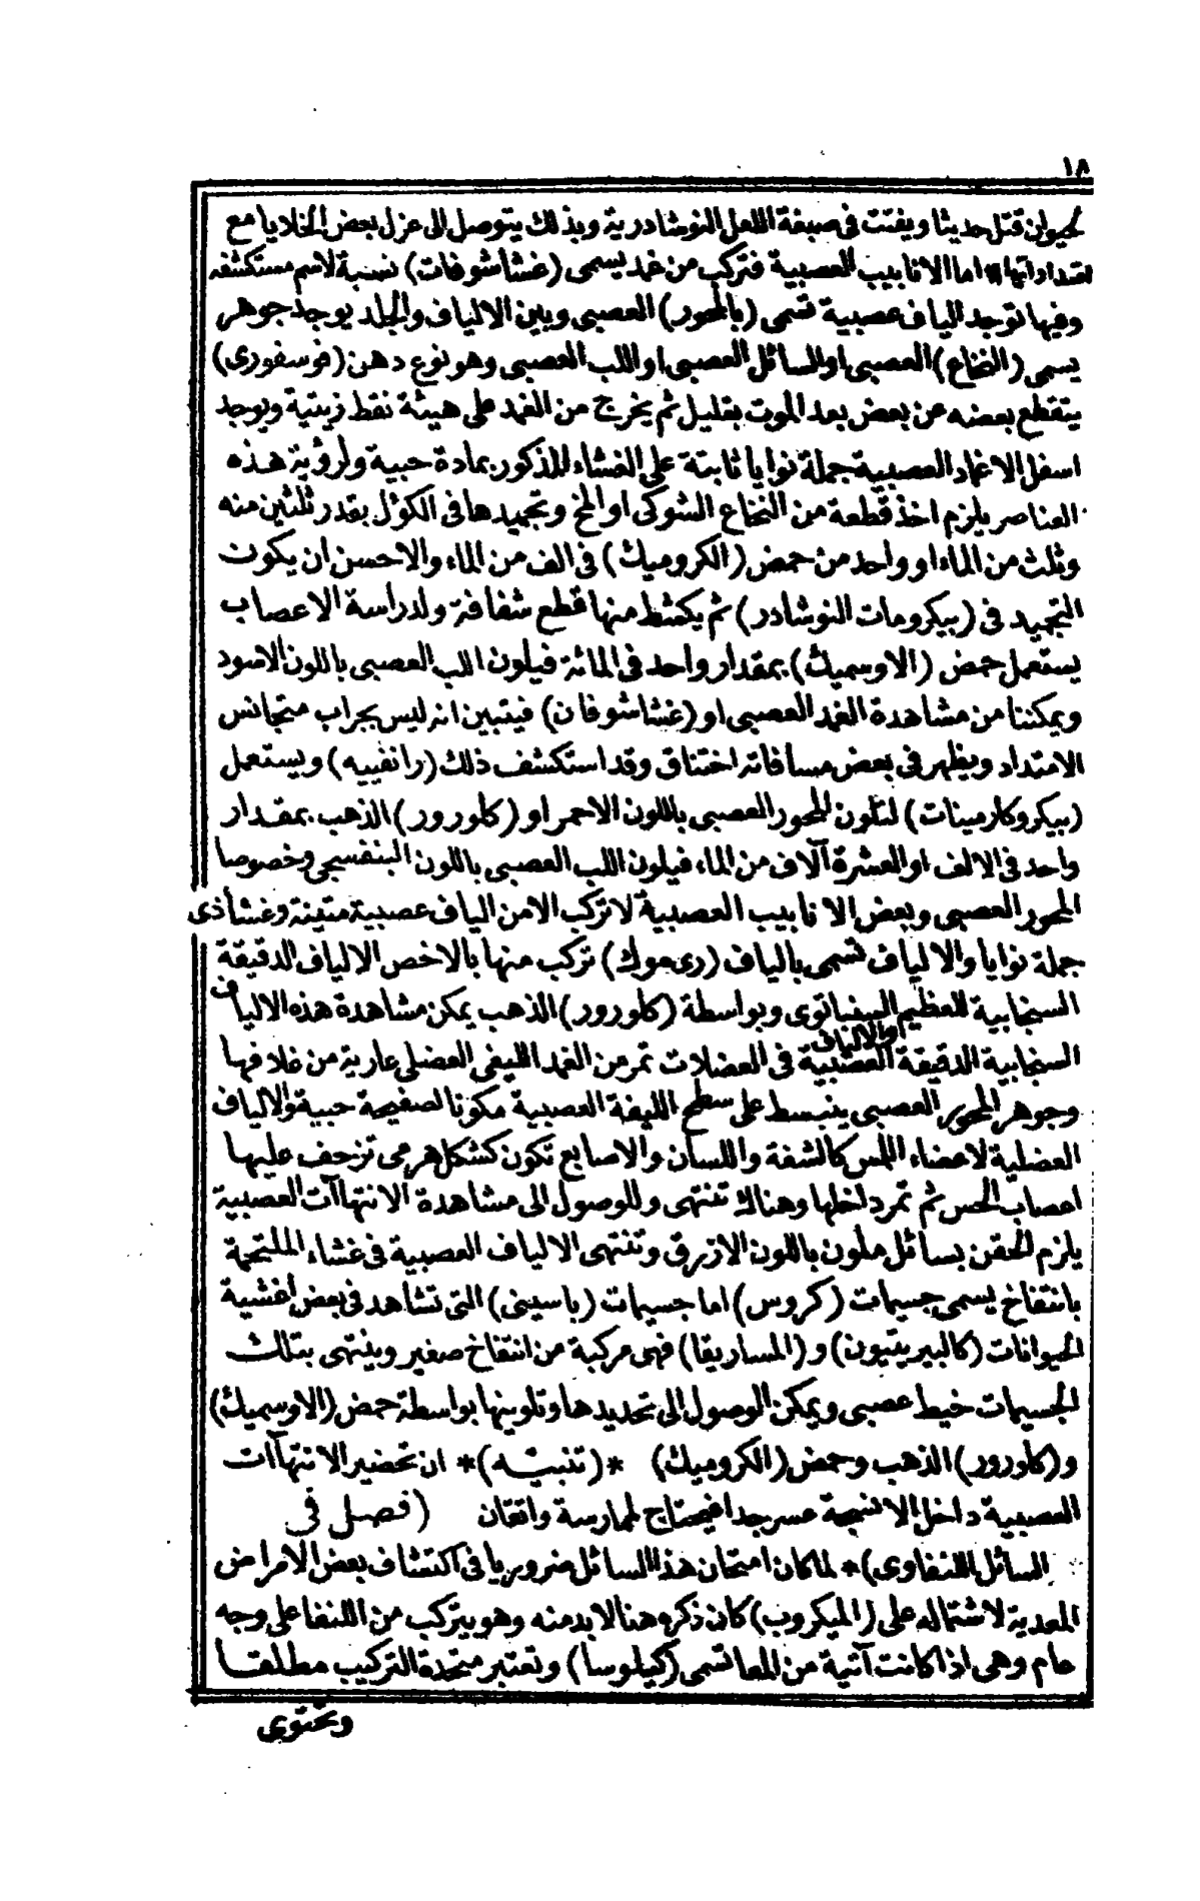 ١٨
لحيوان قتل حديثا ويفتت فى صبغة اللعل النوشادرية وبذلك يتوصل الى عزل بعض الخلايا مع
امتداداتها * اما الانابيب العصبية فتركب من غمد يسمى (غشاشوفات) نسبة لاسم مستكشفه
وفيها توجد الياف عصبية تسمى (بالمحور) العصبى وبين الالياف والجلد يوجد جوهر
يسمى (النخاع) العصبى او السائل العصبى او اللب العصبى وهو نوع دهن (فوسفورى)
يتقطع بعضه من بعض بعد الموت بقليل ثم يخرج من الغمد على هيئة نقط زيتية ويوجد
اسفل الاغماد العصبية جملة نوايا ثابتة على الغشاء المذكور بمادة حبية ولرؤية هذه
العناصر يلزم اخذ قطعة من النخاع الشوكى او المخ وتجميدها فى الكؤل بقدر ثلثين منه
وثلث من الماء او واحد من حمض (الكروميك) فى الف من الماء والاحسن ان يكون
التجميد فى (بيكرومات النوشادر) ثم يكشط منها قطع شفافة ولدراسة الاعصاب
يستعمل حمض (الاوسميك) بمقدار واحد فى المائة فيلون اللب العصبى باللون الاسود
ويمكننا من مشاهدة الغمد العصبى او (غشاشوفان) فيتبين انه ليس بجراب متجانس
الامتداد ويظهر فى بعض مسافاته اختناق وقد استكشف ذلك (رانفييه) ويستعمل
(بيكروكارمينات) لتلون المحور العصبى باللون الاحمر او (كلورور) الذهب بمقدار
واحد فى الالف او العشرة آلاف من الماء فيلون اللب العصبى باللون البنفسجى وخصوصا
المحور العصبى وبعض الانابيب العصبية لا تركب الا من الياف عصبية متينة وغشأ ذى
جملة نوايا والالياف تسمى بالياف (رى موك) تركب منها بالاخص الالياف الدقيقة
السنجابية للعظيم السيفباتوى وبواسطة (كلورور) الذهب يمكن مشاهدة هذه الالياف
او الالياف
السنجابية الدقيقة العصبية فى العضلات تمر من الغمد الليفى العضلى عارية من غلافها
وجوهر المحور العصبى ينبسط على سطح الليفة العصبية مكونا لصفيحة حبية والالياف
العضلية لاعضاء اللمس كالشفة واللسان والاصابع تكون كشكل هرمى تزحف عليها
اعصاب الحس ثم تمر داخلها وهناك تنتهى وللوصول الى مشاهدة الانتهاآت العصبية
يلزم الحقن بسائل ملون باللون الازرق وتنتهى الالياف العصبية فى غشاء الملتحمة
بانتفاخ يسمى جسيمات (كروس) اما جسيمات (باسينى) التى تشاهد فى بعض اغشية
الحيوانات (كالبيريتيون) و (المساريقا) فهى مركبة من انتفاخ صغير وينتهى بتلك
الجسيمات خيط عصبى ويمكن الوصول الى تحديدها وتلوينها بواسطة حمض (الاوسميك)
و (كلورور) الذهب وحمض (الكروميك) * (تنبيه) * ان تحضير الانتهاآت
العصبية داخل الانسجة عسر جدا فيحتاج لممارسة واتقان (فصل فى
السائل اللنفاوى) * لما كان امتحان هذا السائل ضروريا فى اكتشاف بعض الامراض
المعدية لاشتماله على (الميكروب) كان ذكره هنا لا بد منه وهو يتركب من اللنفا على وجه
عام وهى اذا كانت آتية من المعا تسمى (كيلوسا) وتعتبر متحدة التركيب مطلقا
وتحتوى